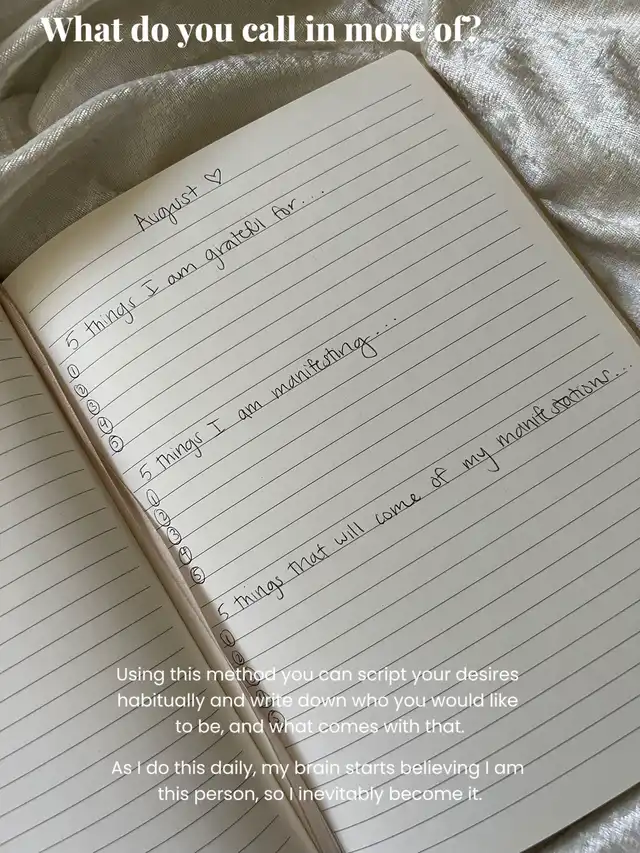 What do you call in more of?
August ♡
5 things I am grateful for...
①
②
③
④
⑤
5 things I am manifesting...
①
②
③
④
⑤
5 things that will come of my manifestations...
①
②
Using this method you can script your desires
habitually and write down who you would like
to be, and what comes with that.
As I do this daily, my brain starts believing I am
this person, so I inevitably become it.